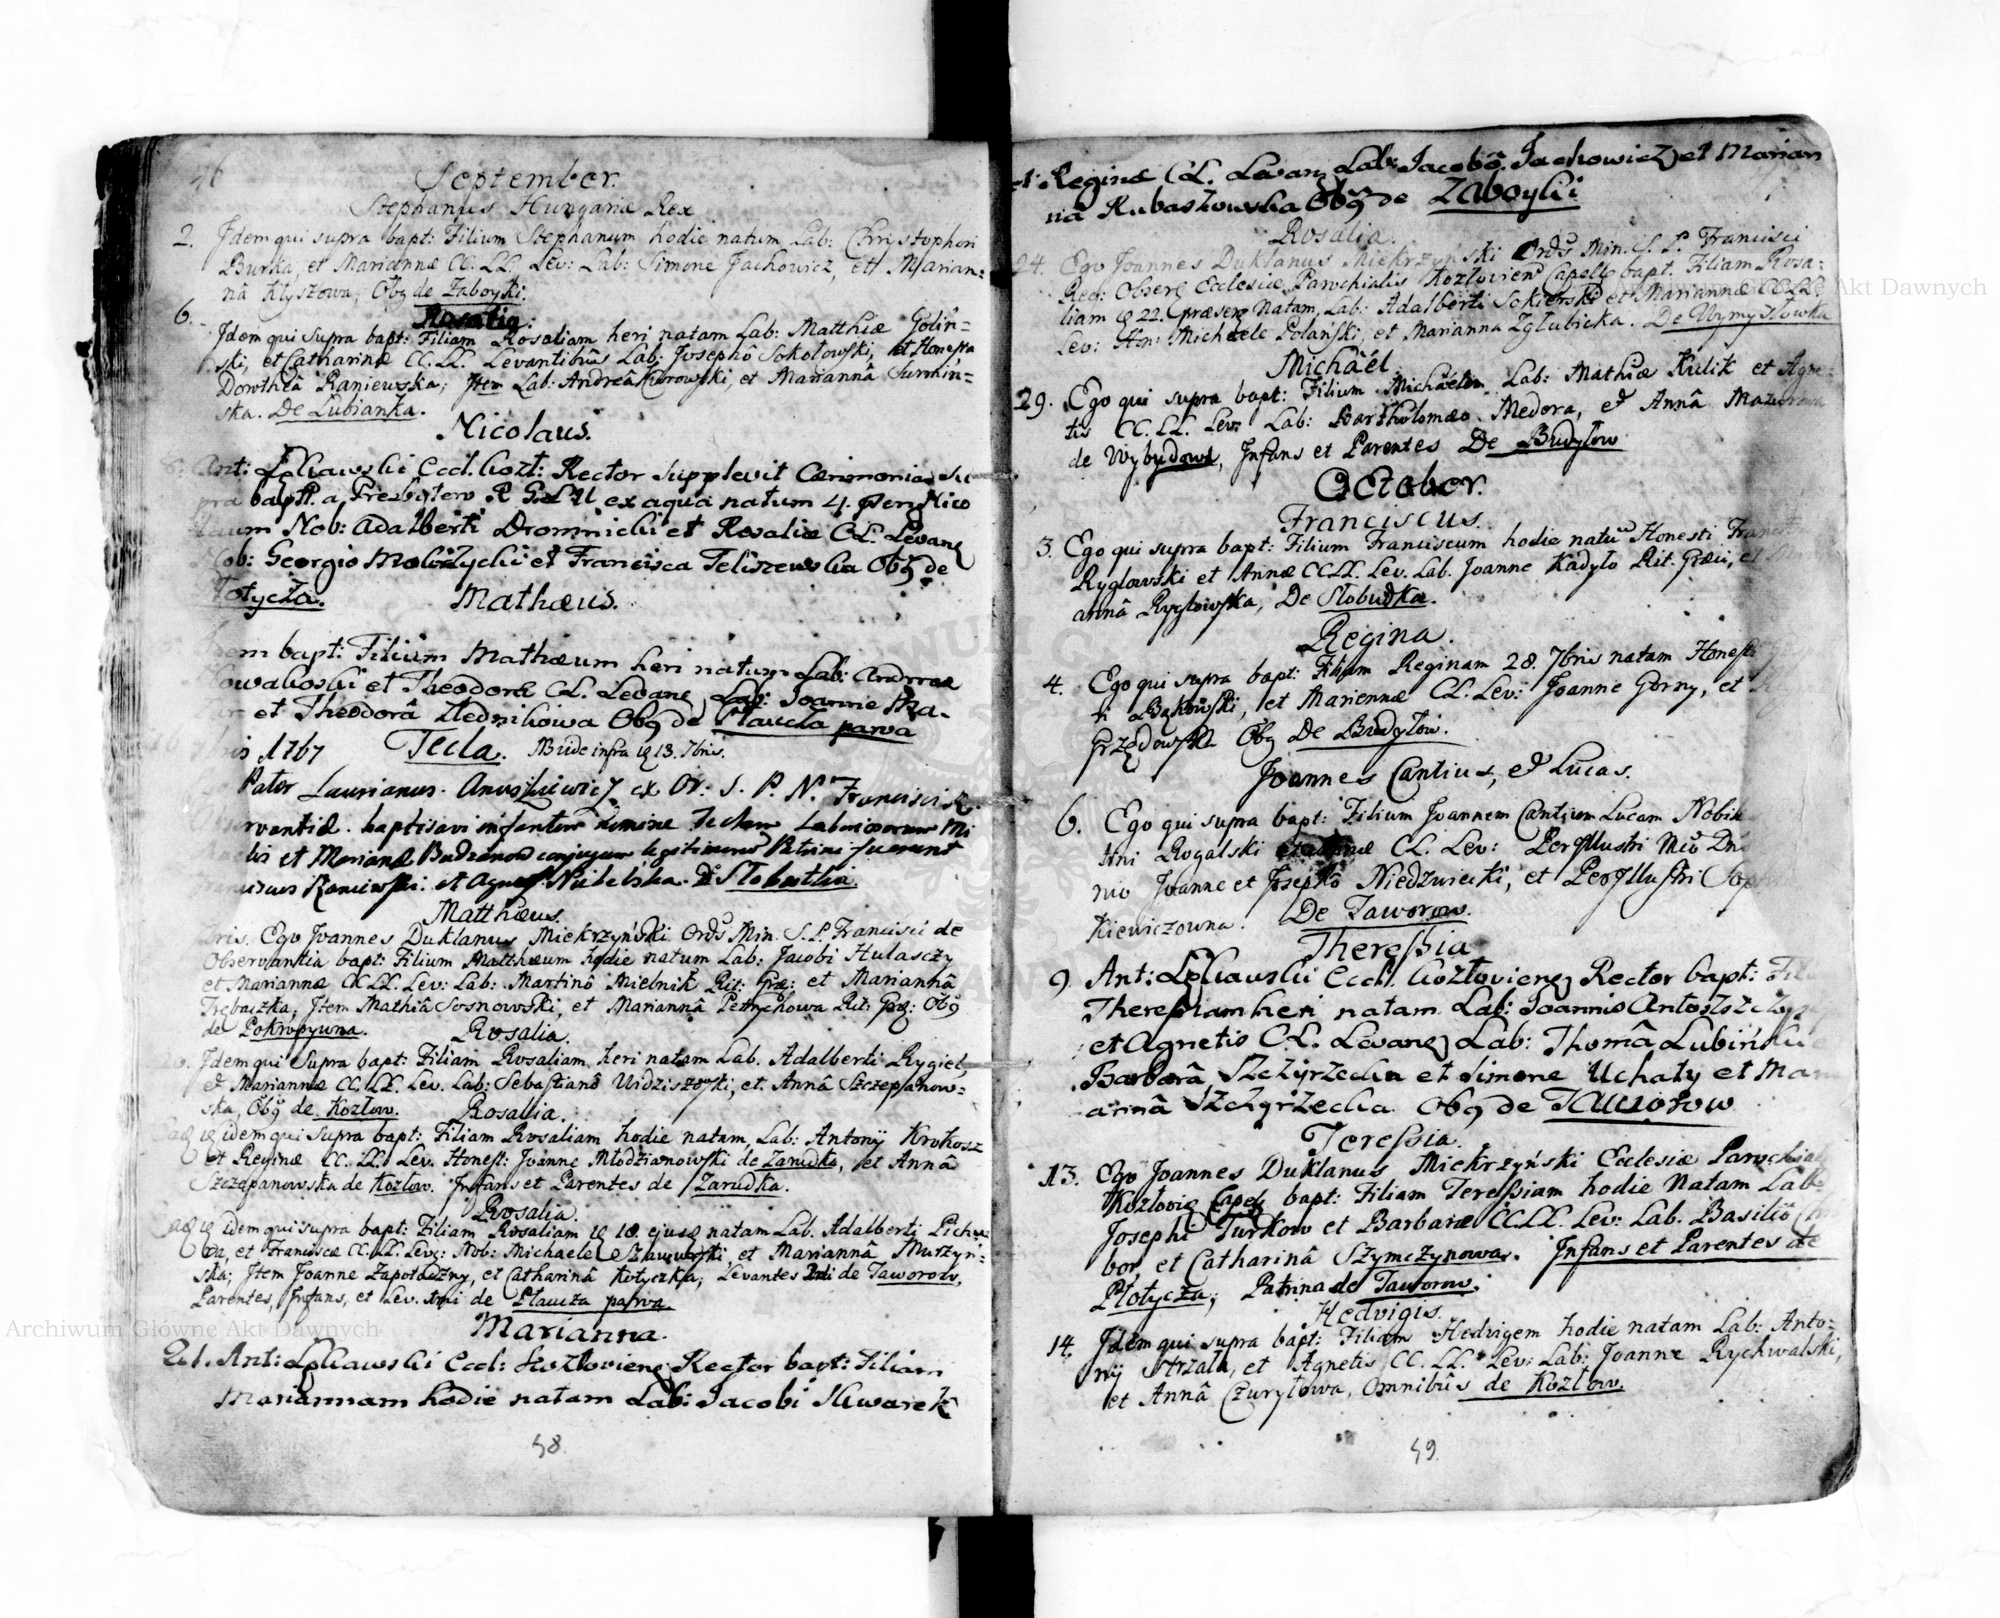 September.
Stephanus Hungariæ Rex
2. Idem qui supra bapt: Filium Stephanum hodie natum Lab: Chrystophori
Burka, et Mariannæ CC. LL. Lev: Lab: Simone Jachowicz, et Marian=
nâ Klyszowa, Obg de Zaboyki.
6. Rosalia.
Idem qui supra bapt: Filiam Rosaliam heri natam Lab: Matthiæ Golin=
ski, et Catharinæ CC. LL. Levantibûs Lab: Josephô Sokołowski, et Honesta
Dorotheâ Raniewska; Item Lab: Andreâ Kurowski, et Mariannâ
ska. De Lubianka.
Nicolaus.
8. Ant: Łękawski Eccl. Kozł: Rector supplevit Cæremonias su
pra bapt. a Presbytero R G. ex aqua natum 4. Nico
laum Nob: Adalberti Dromnicki et Rosaliæ CL. Levang
Nob: Georgio et Francisca Teliszewska Obg de
Płotycza. Mathæus.
Idem bapt: Filium Mathæum heri natum Lab: Andreæ
Kowalkoski et Theodoræ CL. Levang Lab: Joanne Ska-
et Theodorâ Zlednikowa Obg de Płaucza parva
7bris 1767 Tecla. NB vide infra 13. 7bris.
Pater Laurianus ex Or: S. P. N. Francisci
observantiæ baptisavi infantem nomine Teclam Laboriosorum Mi
elis et Marianæ conjugum legitimorum Patrini fuerunt
Raniewski et Agnes Nikelska. De Slobutka.
Matthæus.
bris. Ego Joannes Duklanus Miekrzyński Ords Min. S. P. Francisci de
Observantia bapt: Filium Matthæum hodie natum Lab: Jacobi Hulasczy
et Mariannæ CC. LL. Lev: Lab: Martinô Mielnik Rit: Græ: et Mariannâ
Trębaczka, Item Mathiâ Sosnowski, et Mariannâ Petrychowa Rit: Græ: Obg
de Pokropywna. Rosalia.
Idem qui supra bapt: Filiam Rosaliam heri natam Lab. Adalberti Rygiel,
et Mariannæ CC. LL. Lev. Lab: Sebastianô Widziszowski, et Annâ Szczepanow=
ska, Obg de Kozłow. Rosalia.
idem qui supra bapt: Filiam Rosaliam hodie natam, Lab: Antonij Krokosz
et Reginæ CC. LL. Lev. Honest: Joanne Młodzianowski de Zarudka, et Annâ
Szczepanowska de Kozłow. Infans et Parentes de Zarudka.
Rosalia.
idem qui supra bapt: Filiam Rosaliam 18. natam Lab. Adalberti
et Franciscæ CC. LL. Lev: Nob: Michaele et Mariannâ Murzyn=
ska; Item Joanne Zapotoczny, et Catharinâ Kotyczka; Levantes de Taworow,
Parentes, Infans, et Lev. de Płaucza parva.
Marianna.
21. Ant: Łękawski Eccl: Kozłovieng Rector bapt: Filiam
Mariannam hodie natam Lab: Jacobi Skwarek
58.
et Reginæ CL. Levang Lab: Jacobô Jachowicz et Marian
nâ Kubaszowska Obg de Zaboyki
Rosalia.
24. Ego Joannes Duklanus Miekrzyński Ords Min. S. P. Francisci
Reg: Obserg Ecclesiæ Parochialis Kozłovieng Capellg bapt. Filiam Rosa=
liam 22. præseng Natam, Lab: Adalberti Sokierski et Mariannæ CC. LL.
Lev: Hon: Michaele Polański, et Marianna Zgłubicka. De Wymysłowka
Michaël.
29. Ego qui supra bapt: Filium Michaëlem Lab: Mathiæ Kulik et Agne=
tis CC. LL. Lev: Lab: Bartholomæo Medora, et Annâ Mazurowa
de Wybudowa, Infans et Parentes De Budyłow
October.
Franciscus.
3. Ego qui supra bapt: Filium Franciscum hodie natū Honesti
Rygłowski et Annæ CC. LL. Lev. Lab. Joanne Kadyło Rit. Græci, et
annâ Rygłowska, De Slobudka.
Regina.
4. Ego qui supra bapt: Filiam Reginam 28. 7bris natam Honesti
Bąkowski, et Mariennæ CL. Lev: Joanne Gorny, et
Grzędowska Obg De Budyłow.
Joannes Cantius, et Lucas.
6. Ego qui supra bapt: Filium Joannem Cantium Lucam Nobilis
Rogalski CL. Lev: Perillustri Mco Dno
Joanne et Josephô Niedzwiecki, et Perillustri
kiewiczowna. De Taworow.
Theressia
9 Ant: Łękawski Eccl. Kozłovieng Rector bapt:
Theressiam heri natam Lab: Joannis
et Agnetis CL. Levang Lab: Thomâ Lubiński
Barbarâ Szczyrzecka et Simone Uchaty et Mari
annâ Szczyrzecka Obg de Taworow
Teressia.
13. Ego Joannes Duklanus Miekrzyński Ecclesiæ Parochialis
Kozłovig Capelg bapt: Filiam Teressiam hodie Natam Lab:
Josephi Turkow et Barbaræ CC. LL. Lev: Lab. Basiliô
bor et Catharinâ Szymczynowa. Infans et Parentes de
Płotycza, Patrina de Taworow.
Hedvigis.
14. Idem qui supra bapt: Filiam Hedvigem hodie natam Lab: Anto=
nij Strzała, et Agnetis CC. LL. Lev: Lab: Joanne Rychwalski,
et Annâ Czuryłowa, omnibûs de Kozłow.
59.
Archiwum Główne Akt Dawnych
Archiwum Główne Akt Dawnych